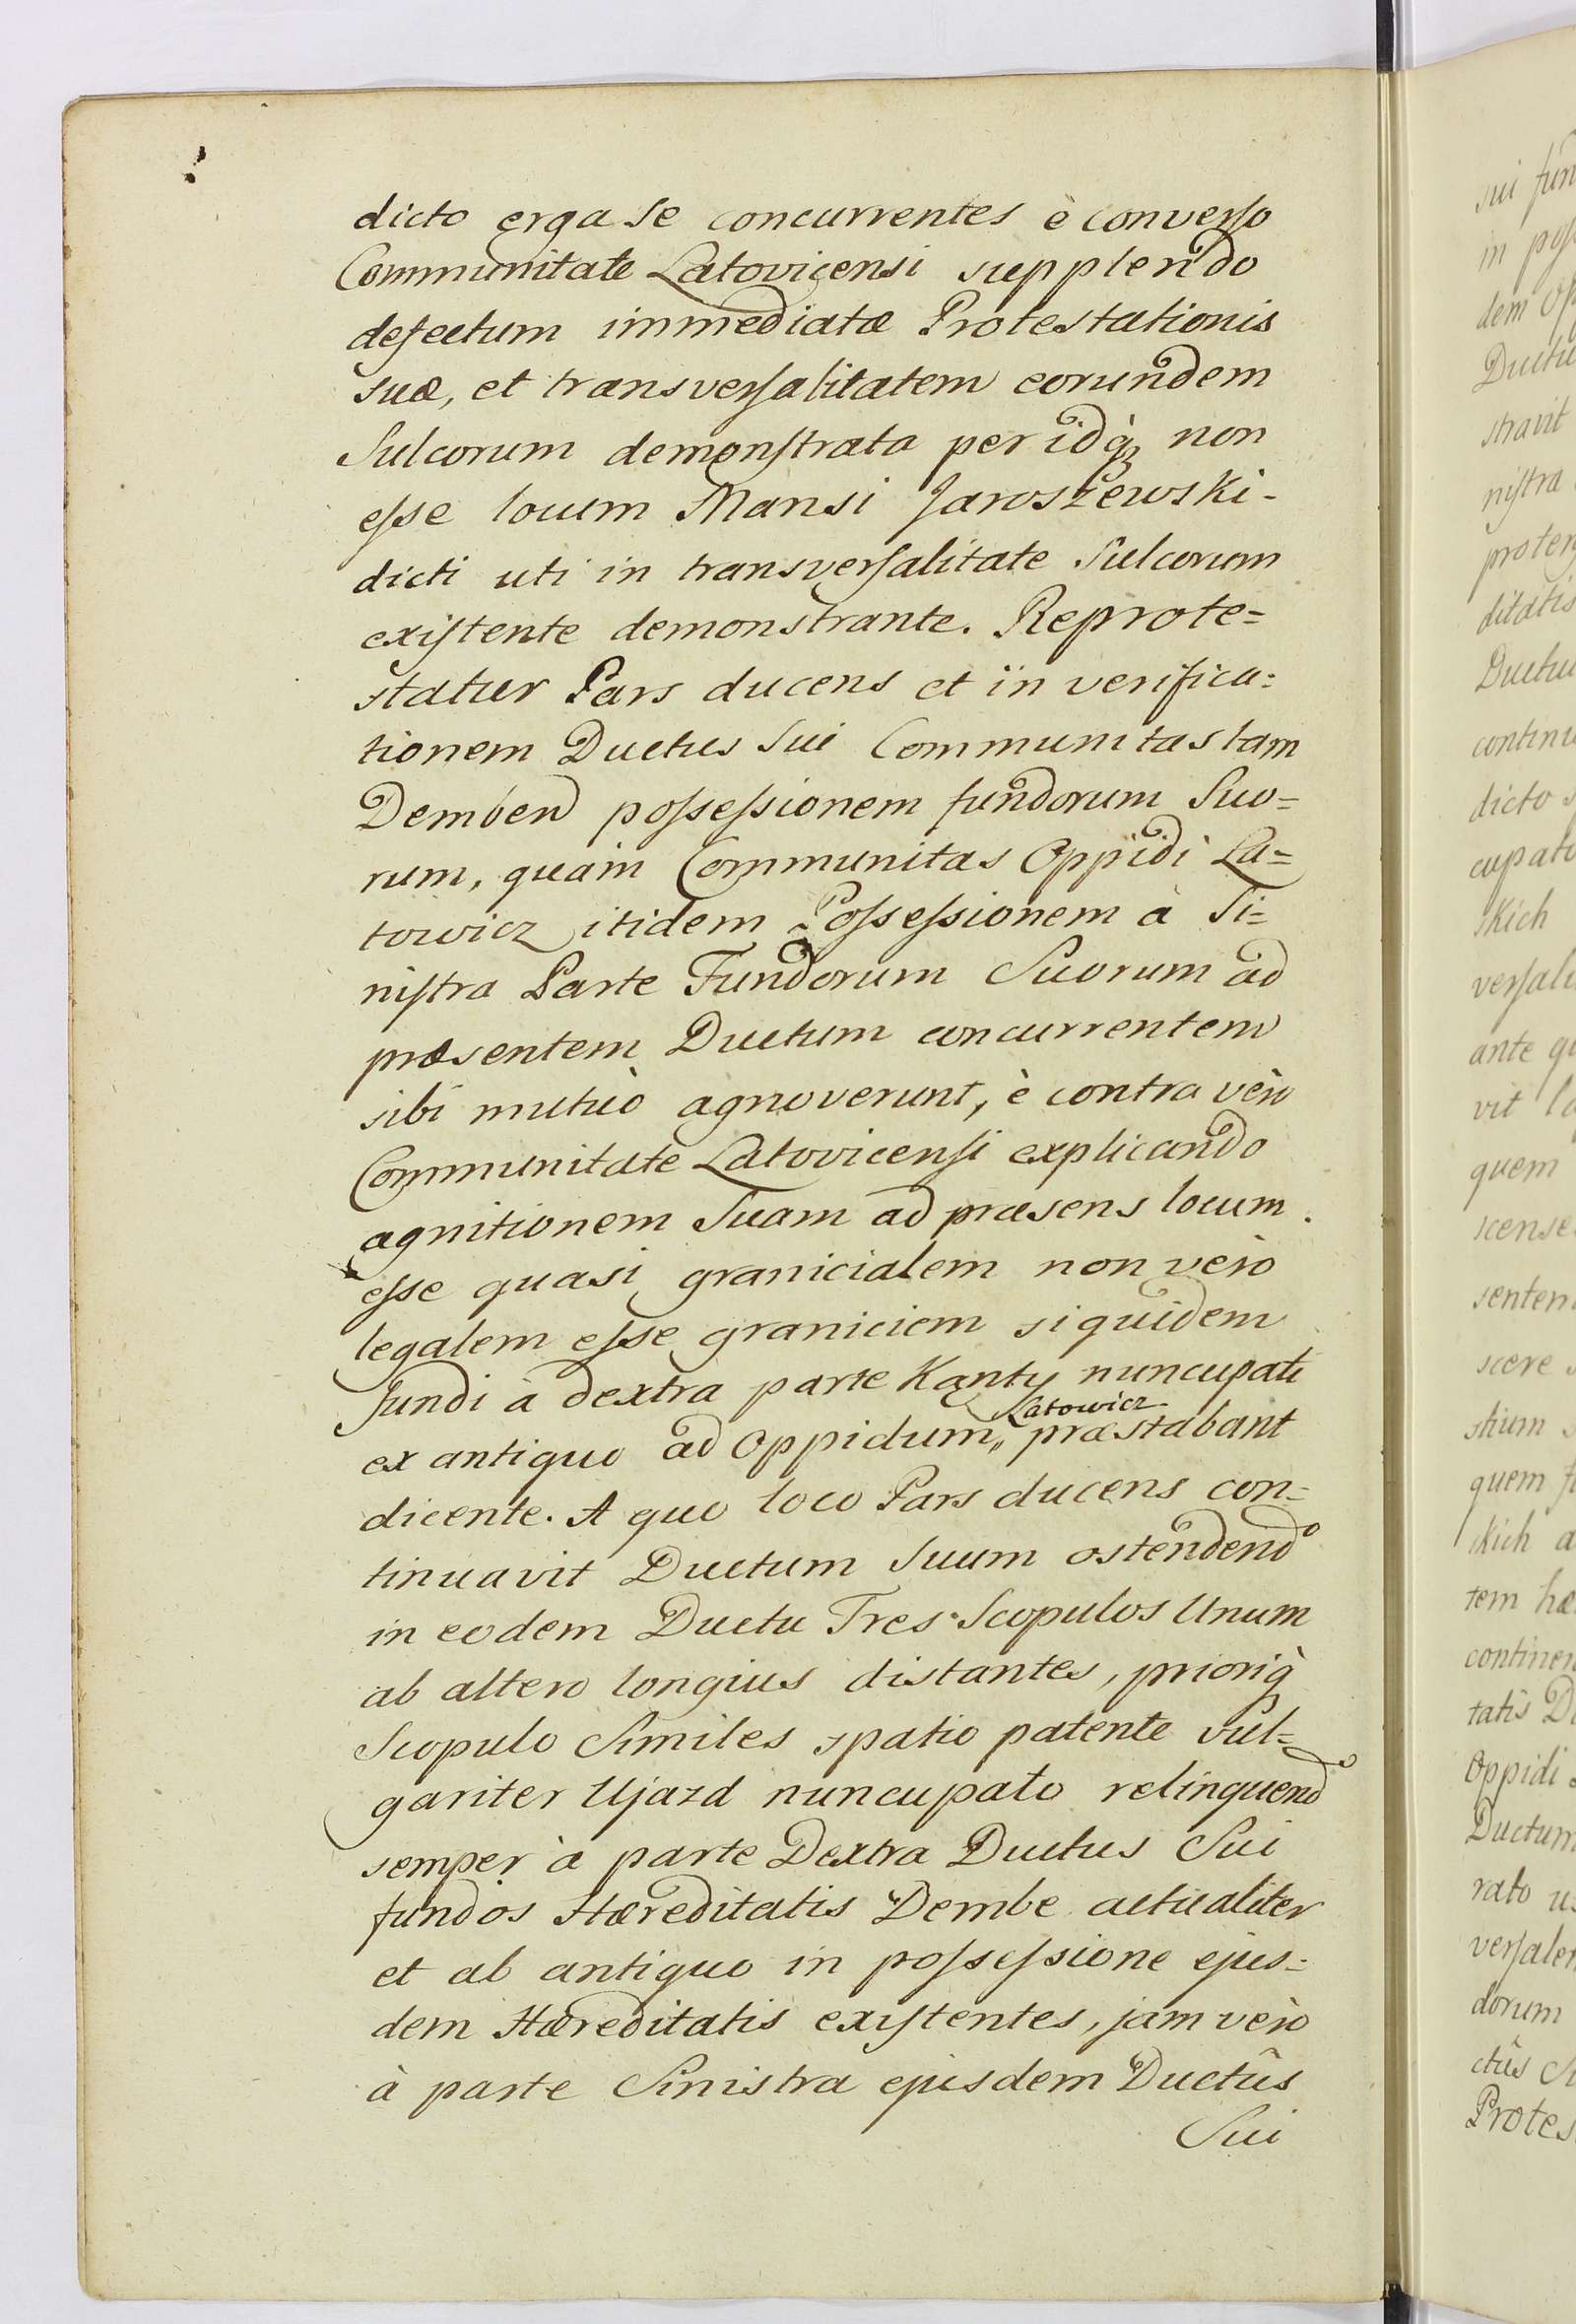 dicto erga se concurrentes è converso
Communitate Latovicensi supplendo
defectum immediatæ Protestationis
suæ, et transversalitatem eorundem
Sulcorum demonstrata per idq; non
esse locum Mansi Jaroszewski-
dicti uti in transversalitate Sulcorum
existente demonstrante. Reprote=
statur Pars ducens et in verifica=
tionem Ductus Sui Communitas tam
Demben possessionem fundorum Suo=
rum, quam Communitas Oppidi La=
towicz itidem Possessionem à Si=
nistra Parte Fundorum Suorum ad
præsentem Ductum concurrentem
sibi mutuò agnoverunt, è contra vero
Communitate Latovicensi explicando
agnitionem Suam ad præsens locum
esse quasi granicialem non vero
legalem esse graniciem siquidem
fundi à dextra parte Kąnty nuncupati
Latowicz
ex antiquo ad Oppidum,, præstabant
dicente. A quo loco Pars ducens con=
tinuavit Ductum Suum ostendendo
in eodem Ductu Tres Scopulos Unum
ab altero longius distantes, prioriq̀
Scopulo Similes spatio patente vul=
gariter Ujazd nuncupato relinquendo
semper à parte Dextra Ductus Sui
fundos Hæreditatis Dembe actualiter
et ab antiquo in possessione ejus=
dem Hæreditatis existentes, jam vero
à parte Sinistra ejusdem Ductûs
Sui
sui fun
in pos
dem Op
Ductu
stravit
nistra
proten
ditatis
Ductu
continu
dicto s
cupato
skich
versali
ante qu
vit lo
quem
scense
senten
scere s
stium s
quem fu
skich a
tem hæ
continen
tatis D
Oppidi
Ductum
rato us
versalem
dorum
ctûs S
Protes